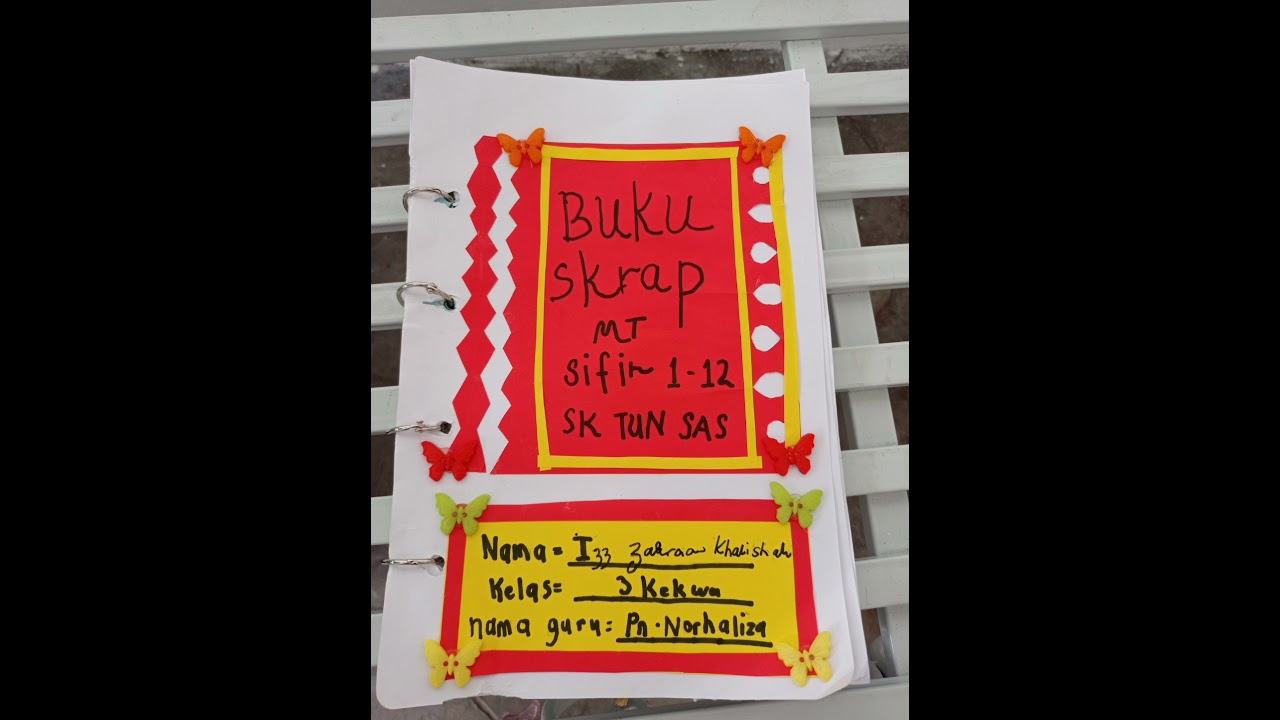 BUKU
skrap
MT
sifir 1-12
SK TUN SAS
Nama = Izz Zahraa Khalishah
Kelas = 3 Kekwa
nama guru: Pn. Norhaliza